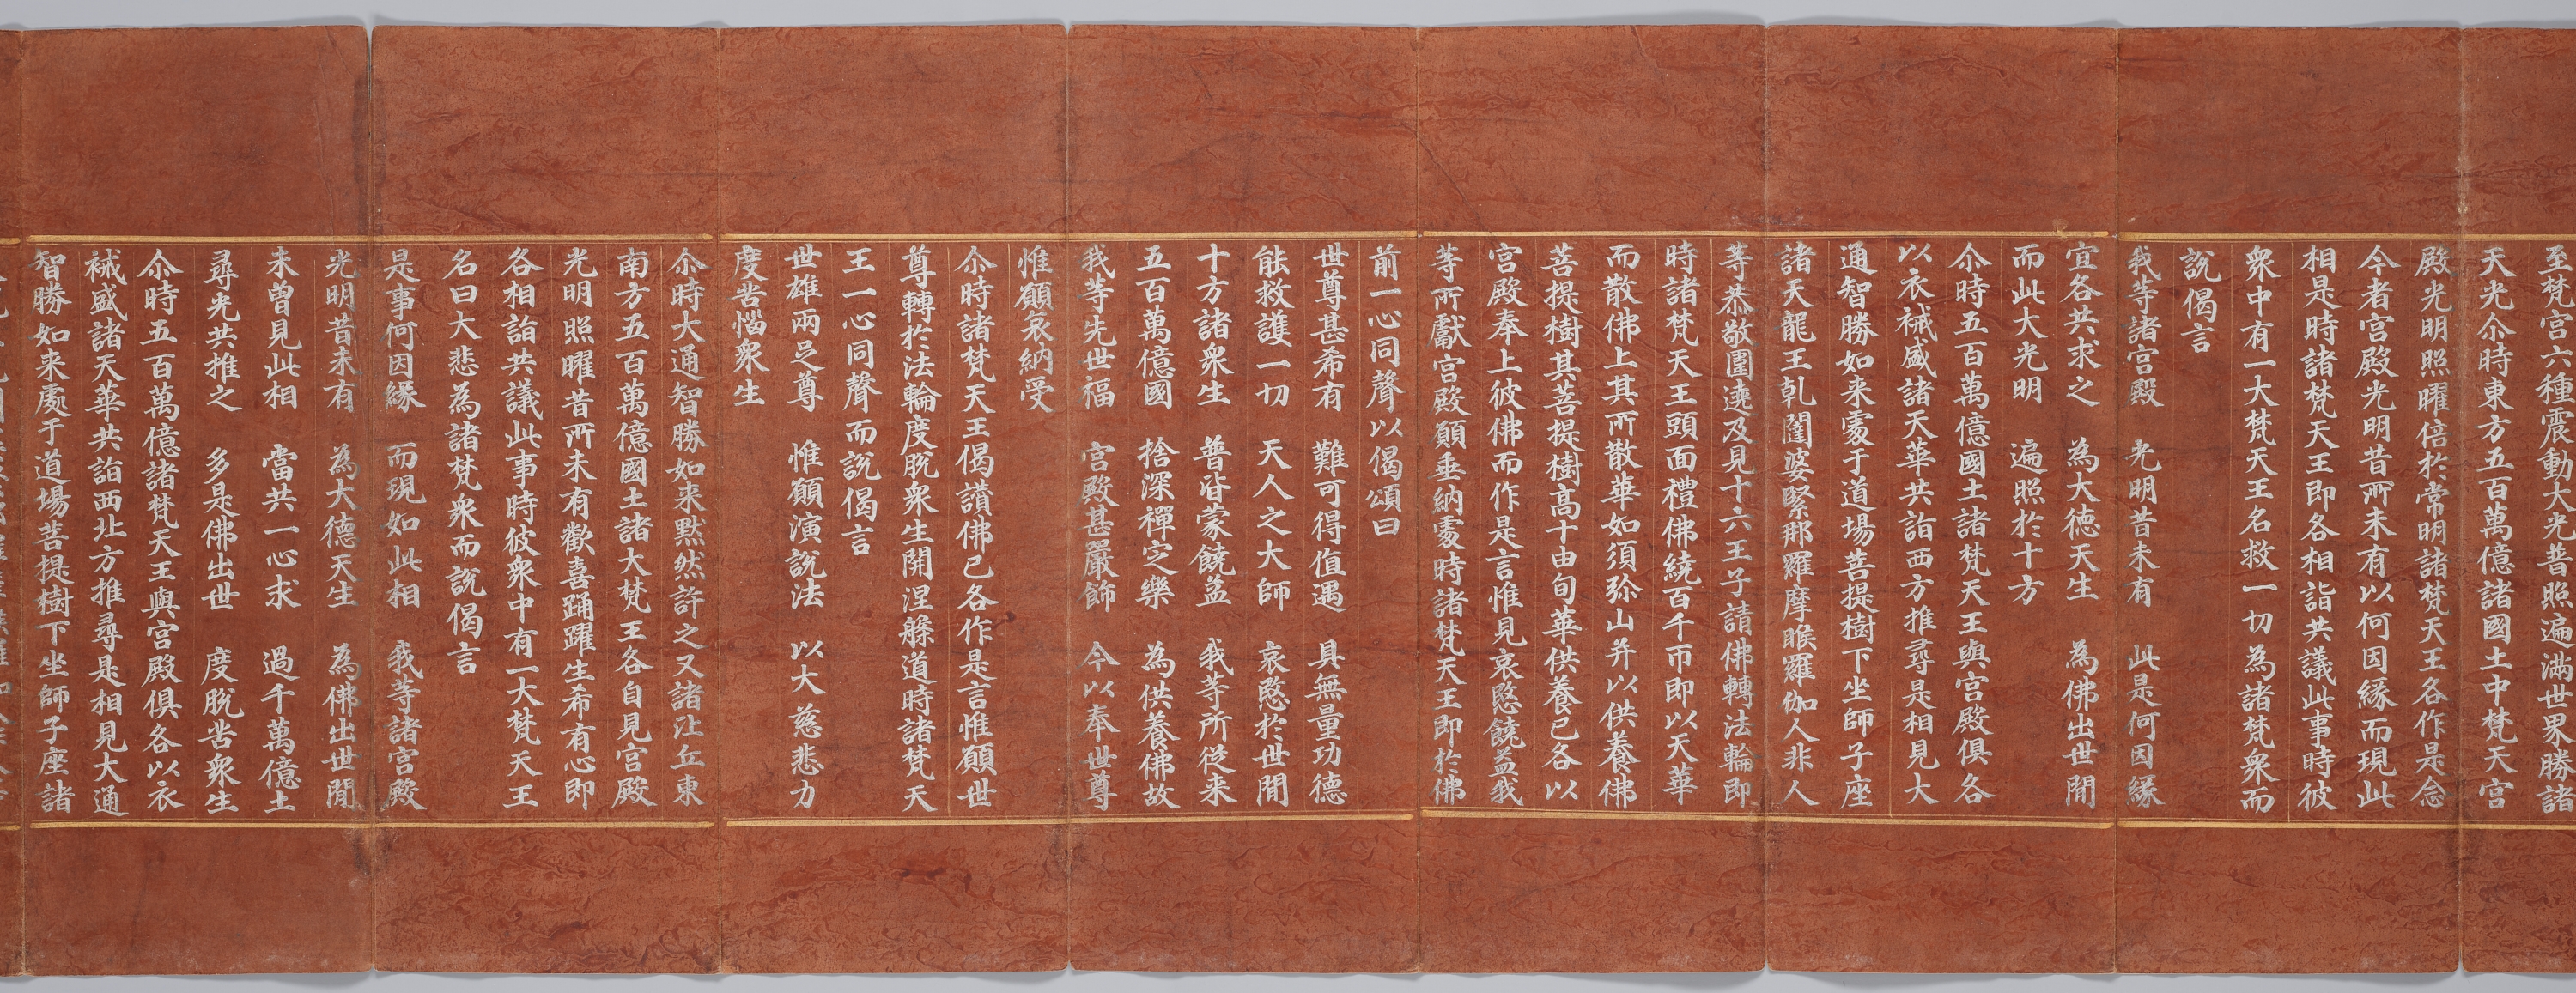 至梵宮六種震動大光普照遍滿世界勝諸
天光尒時東方五百萬億諸國土中梵天宮
殿光明照曜倍於常明諸梵天王各作是念
今者宮殿光明昔所未有以何因緣而現此
相是時諸梵天王即各相詣共議此事時彼
衆中有一大梵天王名救一切為諸梵衆而
說偈言
我等諸宮殿　光明昔未有　此是何因緣
宜各共求之　為大德天生　為佛出世間
而此大光明　遍照於十方
尒時五百萬億國土諸梵天王與宮殿俱各
以衣裓盛諸天華共詣西方推尋是相見大
通智勝如来處于道場菩提樹下坐師子座
諸天龍王乹闥婆緊那羅摩睺羅伽人非人
等恭敬圍遶及見十六王子請佛轉法輪即
時諸梵天王頭面禮佛繞百千帀即以天華
而散佛上其所散華如須弥山并以供養佛
菩提樹其菩提樹高十由旬華供養已各以
宮殿奉上彼佛而作是言惟見哀愍饒益我
等所獻宮殿願垂納處時諸梵天王即於佛
前一心同聲以偈頌曰
世尊甚希有　難可得值遇　具無量功德
能救護一切　天人之大師　哀愍於世間
十方諸衆生　普皆蒙饒益　我等所從来
五百萬億國　捨深禪定樂　為供養佛故
我等先世福　宮殿甚嚴飾　今以奉世尊
惟願哀納受
尒時諸梵天王偈讚佛已各作是言惟願世
尊轉於法輪度脫衆生開涅槃道時諸梵天
王一心同聲而說偈言
世雄兩足尊　惟願演說法　以大慈悲力
度苦惱衆生
尒時大通智勝如来默然許之又諸比丘東
南方五百萬億國土諸大梵王各自見宮殿
光明照曜昔所未有歡喜踊躍生希有心即
各相詣共議此事時彼衆中有一大梵天王
名曰大悲為諸梵衆而說偈言
是事何因緣　而現如此相　我等諸宮殿
光明昔未有　為大德天生　為佛出世間
未曾見此相　當共一心求　過千萬億土
尋光共推之　多是佛出世　度脫苦衆生
尒時五百萬億諸梵天王與宮殿俱各以衣
裓盛諸天華共詣西北方推尋是相見大通
智勝如来處于道場菩提樹下坐師子座諸